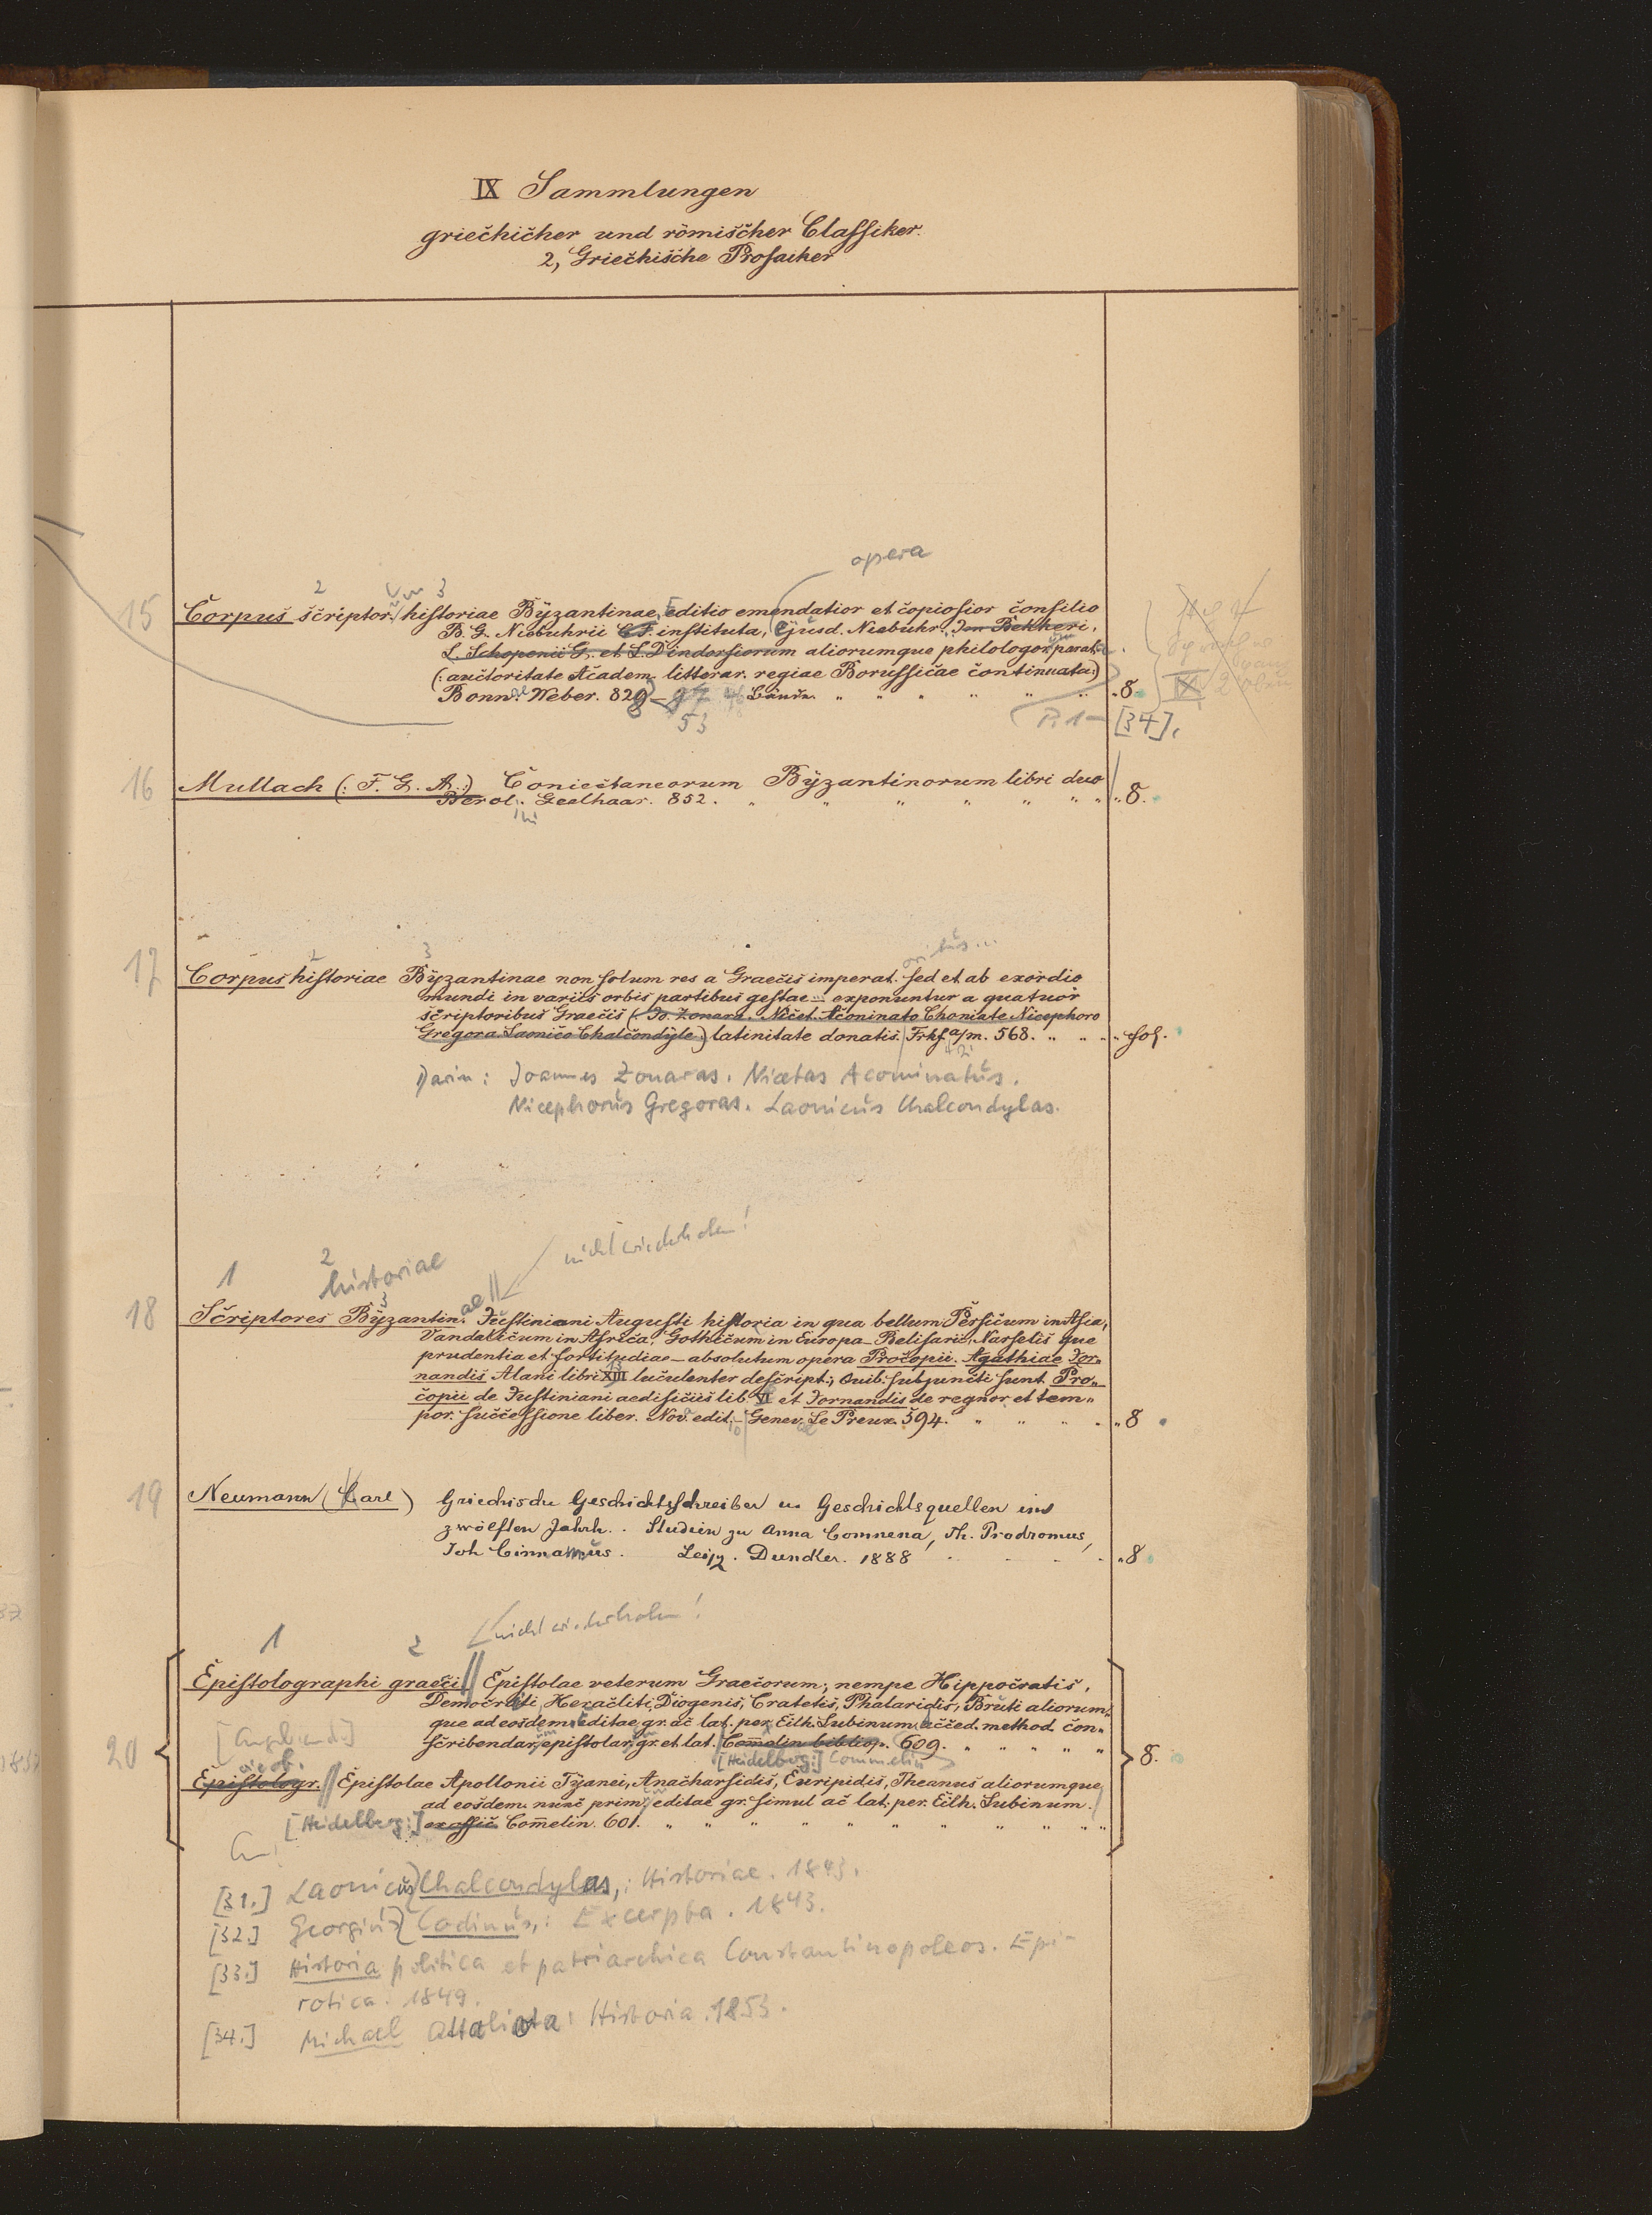 IX Sammlungen
griechicher und römischer Classiker.
2, Griechische Prosaiker
opera
2 3
15 Corpus scriptor. historiae Byzantinae, editio emendatior et copiosior consilio
B. G. Niebuhrii C. F. instituta, ejusd. Niebuhr. Im Bekkeri,
L. Schopenii G. et L. Dindorfiorum aliorumque philologor. parat.
(: auctoritate Academ. litterar. regiae Borussicae continuata:)
Bonn. Weber. 829 Bände. " " " " " " " 8.
53 [34].
16 Mullach (: F. G. A.:) Coniectaneorum Byzantinorum libri duo
Berol. Gealhaar. 852. " " " " " " " 8.
ini
2 3
17 Corpus historiae Byzantinae non solum res a Graecis imperat. sed et ab exordio
mundi in variis orbis partibus gestae – exponuntur a quatuor
scriptoribus Graecis (: Jo. Zonara. Nicet. Acominato Choniate Nicephoro
Gregora. Laonico Chalcondyle:) latinitate donatis. Frkf. a/m. 568. " " " fol.
Darin: Joannes Zonaras. Nicetas Acominatus.
Nicephorus Gregoras. Laonicus Chalcondylas.
nicht wiederholen!
1 2 historiae
3
18 Scriptores Byzantin. ae Justiniani Augusti historia in qua bellum Persicum in Asia,
Vandalicum in Africa, Gothicum in Europa – Belisarii, Narsetis que
prudentia et fortitudiae – absolutum opera Procopii. Agathiae Jor-
nandis Alani libri XIII luculenter descript.; Quib. subjuncti sunt Pro-
copii de Justiniani aedificiis lib. VI et Jornandis de regnor. et tem-
por. successione liber. Nov. edit. – Genev. Le Preux. 594. " " " " 8
19 Neumann (Carl) Griechische Geschichtsschreiber u. Geschichtsquellen im
zwölften Jahrh. . Studien zu Anna Comnena, Th. Prodromus,
Joh Cinnamus. Leipz. Duncker. 1888 . . . . 8
nicht wiederholen!
1 2
Epistolographi graeci Epistolae veterum Graecorum, nempe Hippocratis,
Democriti, Heracliti, Diogenis, Cratetis, Phalaridis, Bruti aliorum-
que ad eosdem editae gr. ac lat. per Eilh. Lubinum. acced. method. con-
20 [Angebund.] scribendar. epistolar. gr. et lat. Comelin bibliop. 609. " " " " " 8.
[Heidelberg:] Commelin
Epistologr. Epistolae Apollonii Tyanei, Anacharsidis, Euripidis, Theanus aliorumque
ad eosdem. nunc prim. editae gr. simul ac lat. per. Eilh. Lubinum.
[Heidelberg:] ex offic Comelin. 601. " " " " " " " " " "
[31.] Laonicus Chalcondylas,: Historiae. 1843.
[32.] Georgius Codinus,: Excerpta. 1843.
[33.] Historia politica et patriarchica Constantinopoleos. Epi-
rotica. 1849.
[34.] Michael Attaliota: Historia. 1853.